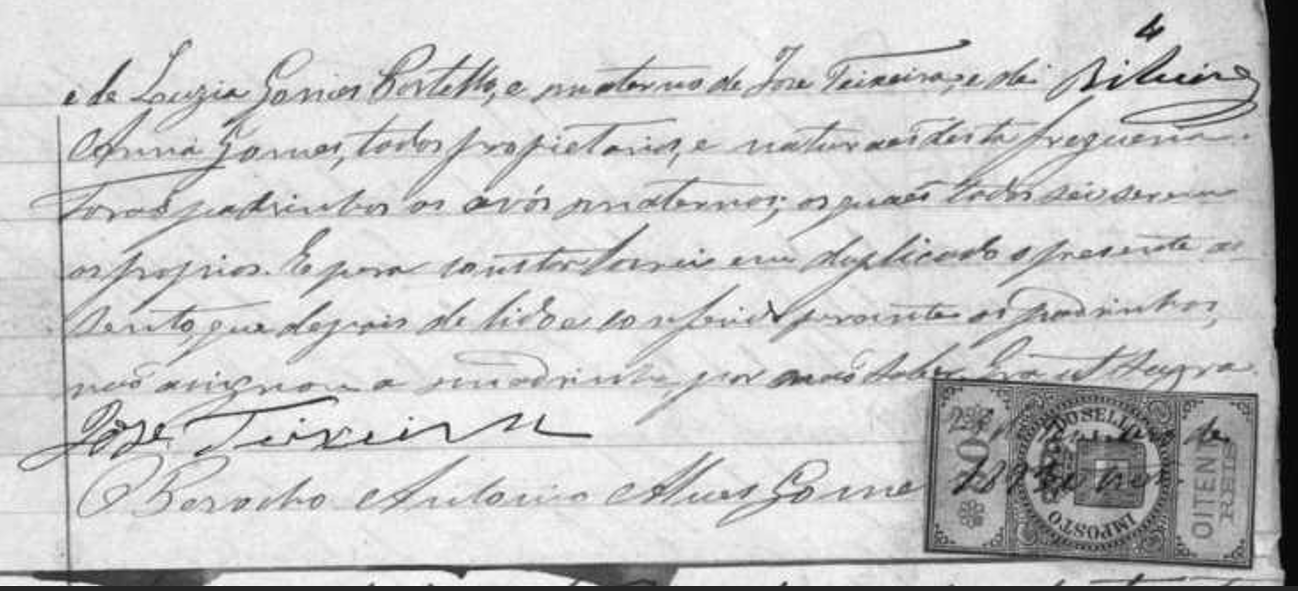 4
Ribeiro
e de Luzia Gomes Portella, e materno de Jose Teixeira, e de
Anna Gomes, todos propietarios, e naturaes desta freguesia.
Foraõ padrinhos os avós maternos; os quaes todos sei serem
os proprios. E para constar lavrei em duplicado o presente as
sento, que depois de lido e conferido perante os padrinhos,
naõ assignou a madrinha, por naõ saber. Era ut supra.
José Teixeira
O Parocho Antonio Alves Gomes
IMPOSTO DO SELLO
OITENTA
REIS